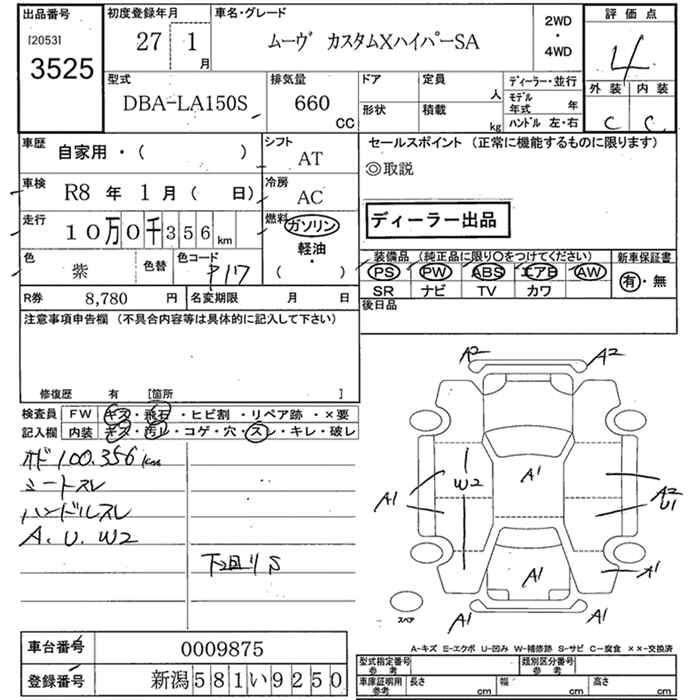 出品番号
[2053]
3525
初度登録年月
27 1 月
車名・グレード
ムーヴ カスタムXハイパーSA
2WD
・
4WD
評価点
4
外装 内装
C C
型式
DBA-LA150S
排気量
660
CC
ドア
形状
定員
人
積載
kg
ディーラー・並行
モデル
年式 年
ハンドル 左・右
車歴
自家用・( )
シフト
AT
車検
R8 年 1 月 ( 日)
冷房
AC
走行
10万0千356 km
燃料
ガソリン
軽油
・
( )
色
紫
色替
色コード
P117
R券 8,780 円
名変期限 月 日
セールスポイント (正常に機能するものに限ります)
◎取説
ディーラー出品
装備品 (純正品に限り〇をつけてください)
PS PW ABS エアB AW
SR ナビ TV カワ
新車保証書
有・無
後日品
注意事項申告欄 (不具合内容等は具体的に記入して下さい)
修復歴 有 [箇所 ]
検査員
記入欄
FW キズ・飛石・ヒビ割・リペア跡・×要
内装 キズ・汚レ・コゲ・穴・スレ・キレ・破レ
オド 100.356km
シートスレ
ハンドルスレ
A. U. W2
下廻りS
A2 A2
A1
W2
A1
A1
A2
U1
A1
A1
A1 A1
スペア
A-キズ E-エクボ U-凹み W-補修跡 S-サビ C-腐食 ××-交換済
車台番号 0009875
登録番号 新潟581い9250
型式指定番号
参考
類別区分番号
参考
車庫証明用
参考
長さ cm
幅 cm
高さ cm